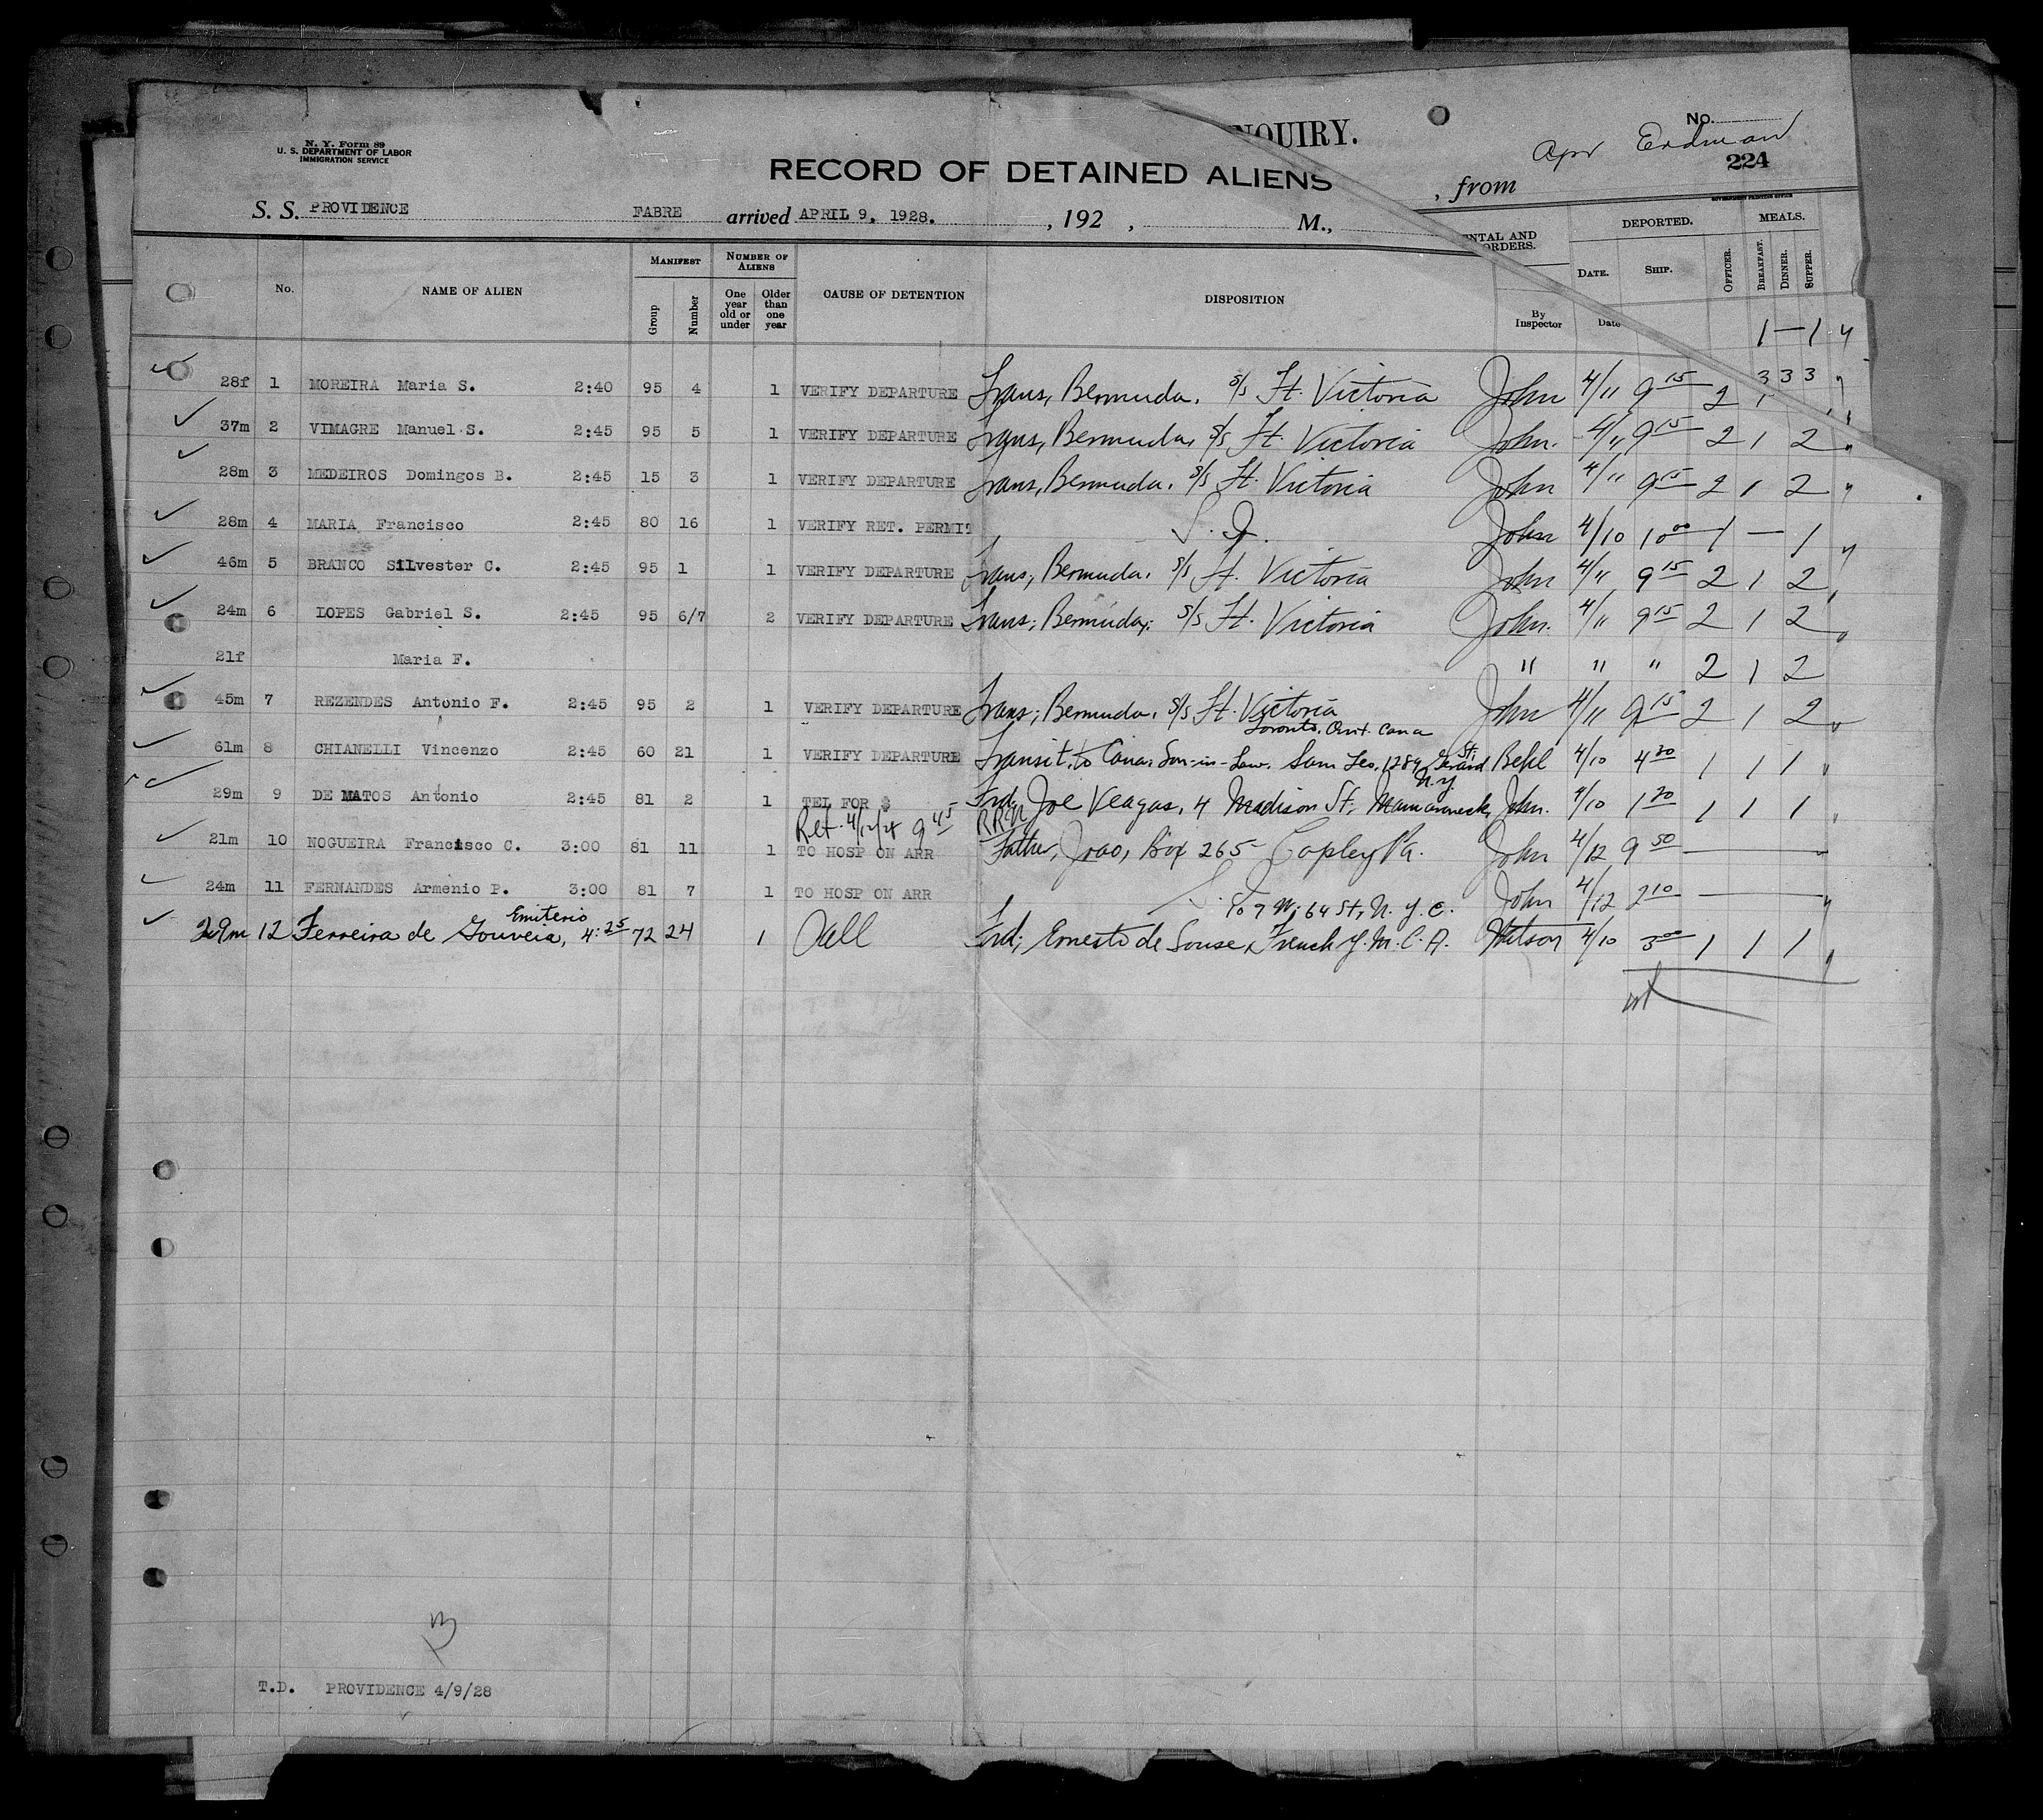 NQUIRY.
No.
Apr Erdman
N. Y. Form 89
U. S. DEPARTMENT OF LABOR
IMMIGRATION SERVICE
RECORD OF DETAINED ALIENS
, from
224
S. S. PROVIDENCE FABRE arrived APRIL 9, 1928. , 192 , M.,
GOVERNMENT PRINTING OFFICE
NTAL AND ORDERS. DEPORTED. MEALS.
DATE. SHIP. OFFICER. BREAKFAST. DINNER. SUPPER.
No. NAME OF ALIEN MANIFEST Group Number NUMBER OF ALIENS One year old or under Older than one year CAUSE OF DETENTION DISPOSITION By Inspector Date
1 — 1 "
3 3 3 "
28f 1 MOREIRA Maria S. 2:40 95 4 1 VERIFY DEPARTURE Trans, Bermuda, s/s Ft. Victoria John 4/11 9 15 2 1
37m 2 VIMAGRE Manuel S. 2:45 95 5 1 VERIFY DEPARTURE Trans, Bermuda, s/s Ft. Victoria John. 4/11 9 15 2 1 2 "
28m 3 MEDEIROS Domingos B. 2:45 15 3 1 VERIFY DEPARTURE Trans, Bermuda, s/s Ft. Victoria John 4/11 9 15 2 1 2 "
28m 4 MARIA Francisco 2:45 80 16 1 VERIFY RET. PERMIT S. I. John 4/10 10 00 1 — 1 "
46m 5 BRANCO Silvester C. 2:45 95 1 1 VERIFY DEPARTURE Trans, Bermuda, s/s Ft. Victoria John 4/11 9 15 2 1 2 "
24m 6 LOPES Gabriel S. 2:45 95 6/7 2 VERIFY DEPARTURE Trans; Bermuda; s/s Ft. Victoria John. 4/11 9 15 2 1 2 "
21f Maria F. " " " 2 1 2
45m 7 REZENDES Antonio F. 2:45 95 2 1 VERIFY DEPARTURE Trans; Bermuda, s/s Ft. Victoria John 4/11 9 15 2 1 2 "
Toronto, Ont. Cana
61m 8 CHIANELLI Vincenzo 2:45 60 21 1 VERIFY DEPARTURE Transit, to Cana, Son-in-Law, Sam Leo, 1289 Gerard St. Behl 4/10 4 20 1 1 1 "
N.Y.
29m 9 DE MATOS Antonio 2:45 81 2 1 TEL FOR $ Frd, Joe Veagas, 4 Madison St, Mamaroneck, John. 4/10 1 20 1 1 1 "
Ret. 4/12/28 9 45 RRN
21m 10 NOGUEIRA Francisco C. 3:00 81 11 1 TO HOSP ON ARR Father, Joao, Box 265 Copley Pa. John 4/12 9 50 — "
24m 11 FERNANDES Armenio P. 3:00 81 7 1 TO HOSP ON ARR John 4/12 2 10 — "
Emiterio 109 W. 64 St, N. Y. C.
29m 12 Ferreira de Gouveia, 4:25 72 24 1 Call Frd; Ernesto de Souse, French Y. M. C. A. Watson 4/10 3 00 1 1 1 "
13
T.D. PROVIDENCE 4/9/28